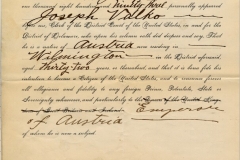 one thousand eight hundred and Ninety three personally appeared
Joseph Valko
before me, Clerk of the District Court of the United States, in and for the
District of Delaware, who upon his solemn oath did depose and say, That
he is a native of Austria now residing in
Wilmington in the District aforesaid,
aged thirty two years or thereabout, and that it is bona fide his
intention to become a Citizen of the United States, and to renounce forever
all allegiance and fidelity to any foreign Prince, Potentate, State or
Sovereignty whatsoever, and particularly to the
Emperor
of Austria
of whom he is now a subject.